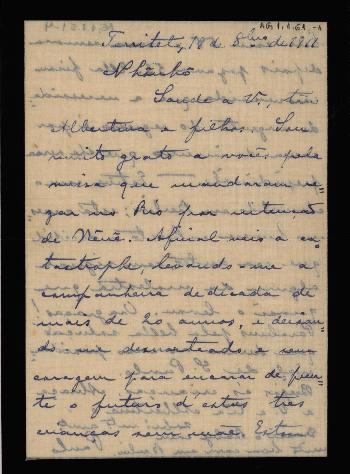 AG1.1.61-1
Territet, 18 de 8bro de 1911
Nhônhô
Saúdo a V., a tia
Albertina e filhos. Sou
muito grato a vocês pela
missa que mandaram re-
zar no Rio por intenção
de Nênê. Afinal veio a ca-
tastrophe, levando-me a
companheira dedicada de
mais de 20 annos, e deixan-
do-me desnorteado e sem
coragem para encarar de fren-
te o futuro d'estas tres
crianças sem mãe.